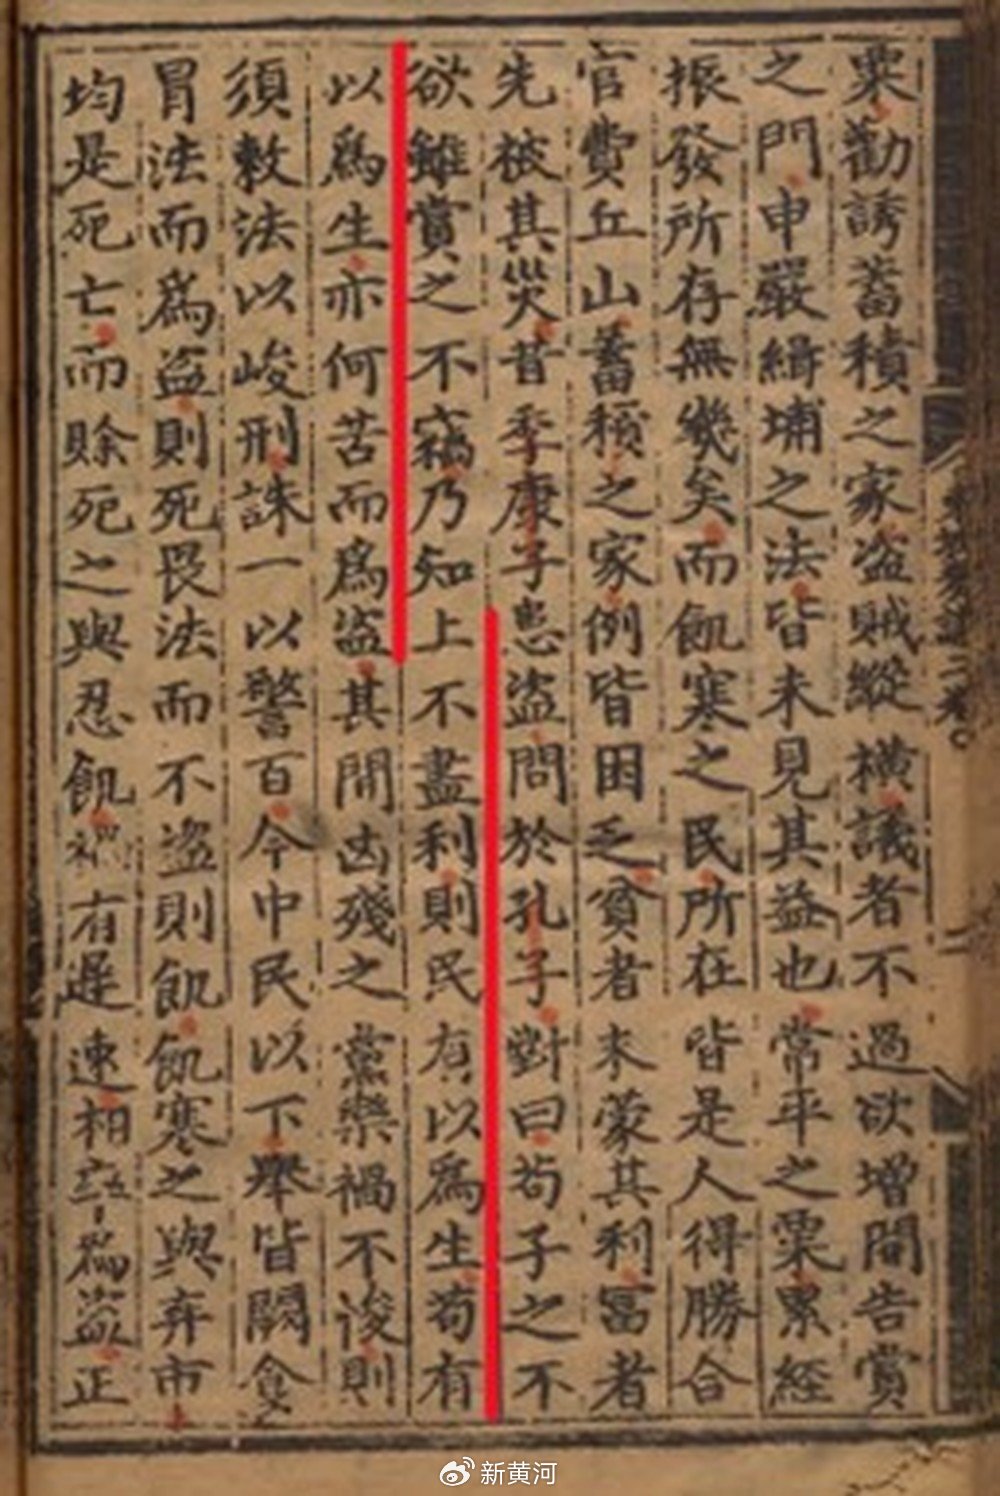 粟勸誘蓄積之家盗賊縱橫議者不過欲增開告賞
之門申嚴緝捕之法皆未見其益也常平之粟累經
振發所存無幾矣而飢寒之民所在皆是人得勝合
官費丘山蓄積之家例皆困乏貧者未蒙其利富者
先被其災昔季康子患盗問於孔子對曰苟子之不
欲雖賞之不竊乃知上不盡利則民有以爲生苟有
以爲生亦何苦而爲盗其間凶殘之黨樂禍不悛則
須敕法以峻刑誅一以警百今中民以下舉皆闕食
冒法而爲盗則死畏法而不盗則飢飢寒之與弃市
均是死亡而賒死之與忍飢禍有遲速相率爲盗正
新黄河